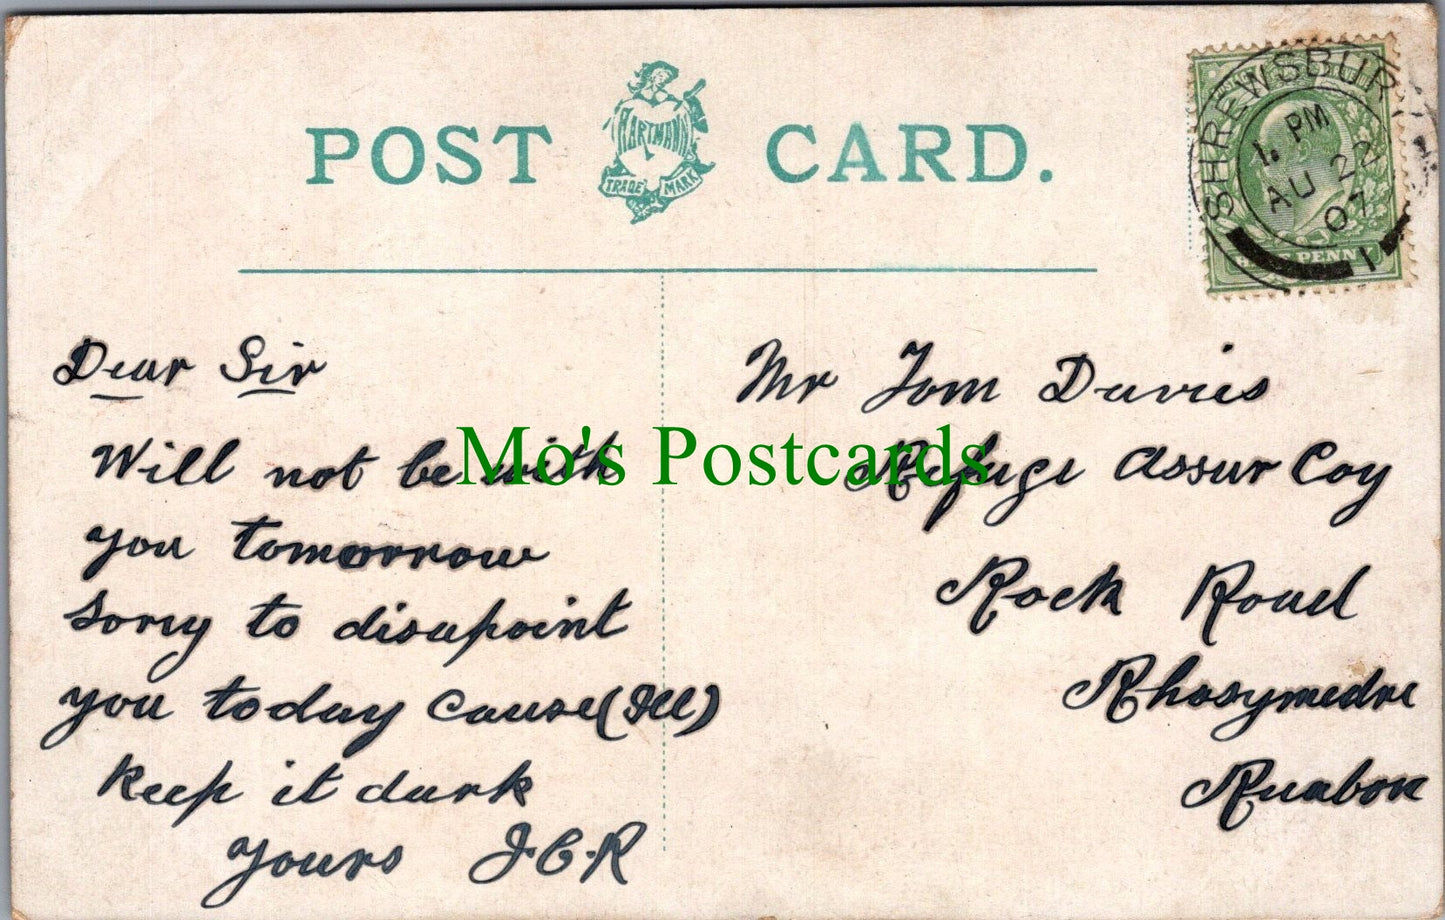 POST CARD.
HARTMANN
TRADE MARK
SHREWSBURY
1. PM
AU 22
07
1
PENNY
Dear Sir
Will not be with
you tomorrow
Sorry to disapoint
you today Cause (Ill)
Keep it dark
Yours J.C.R
Mr Tom Davies
Refuge Assur Coy
Rock Road
Rhosymedre
Ruabon
Mo's Postcards